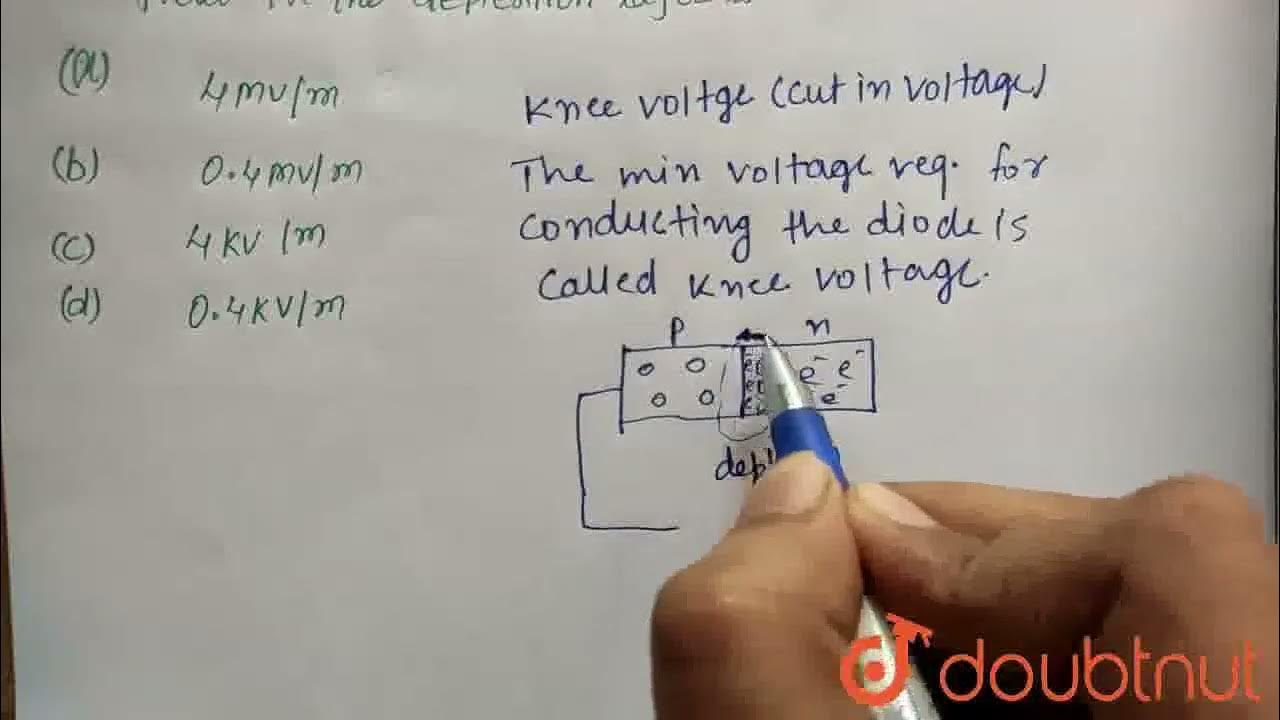 in the depletion
(a) 4mv/m
(b) 0.4mv/m
(c) 4KV/m
(d) 0.4KV/m
Knee voltge (cut in voltage)
The min voltage req. for
conducting the diode is
called knee voltage.
p n
e⁻ e⁻
e⁻
doubtnut